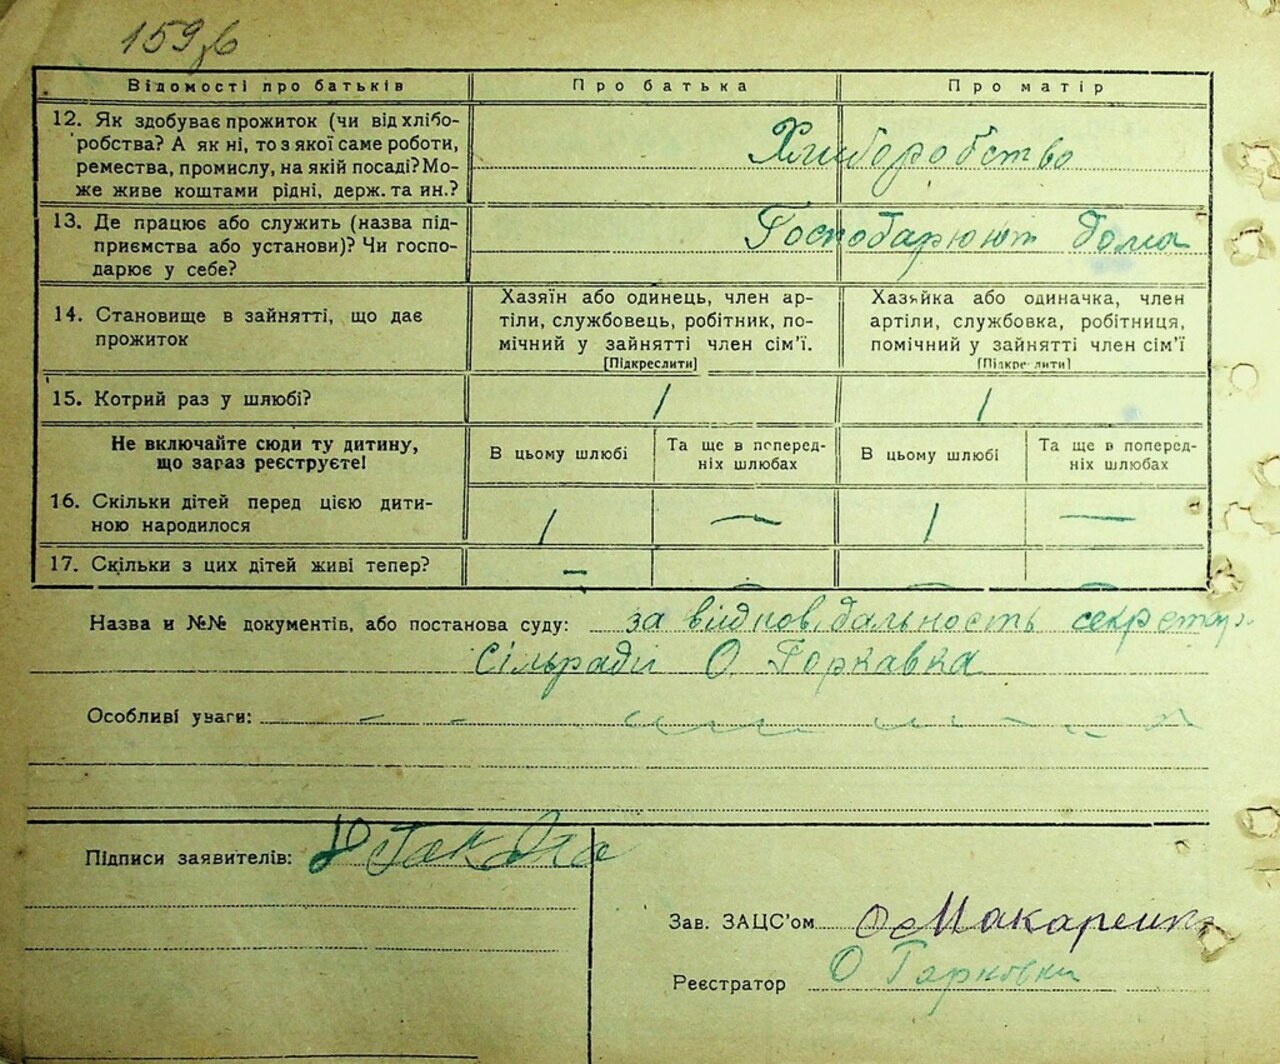 159зв
Відомості про батьків Про батька Про матір
12. Як здобуває прожиток (чи від хлібо-
робства? А як ні, то з якої саме роботи,
ремества, промислу, на якій посаді? Мо-
же живе коштами рідні, держ. та ин.?
Хлиборобство
13. Де працює або служить (назва під-
приємства або установи)? Чи госпо-
дарює у себе?
Господарюют дома
14. Становище в зайнятті, що дає
прожиток
Хазяїн або одинець, член ар-
тіли, службовець, робітник, по-
мічний у зайнятті член сім’ї.
[Підкреслити]
Хазяйка або одиначка, член
артіли, службовка, робітниця,
помічний у зайнятті член сім’ї
[Підкреслити]
15. Котрий раз у шлюбі? 1 1
Не включайте сюди ту дитину,
що зараз реєструєте!
В цьому шлюбі
Та ще в поперед-
ніх шлюбах
В цьому шлюбі
Та ще в поперед-
ніх шлюбах
16. Скільки дітей перед цією дити-
ною народилося
1 — 1 —
17. Скільки з цих дітей живі тепер? — — — —
Назва и №№ документів, або постанова суду: за відповідальность секретар
Сільради О. Горкавка
Особливі уваги:
Підписи заявителів:
Зав. ЗАЦС’ом Макаренко
Реєстратор О